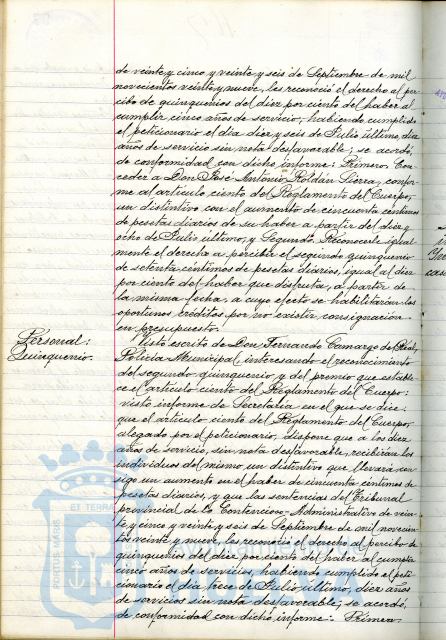 de veinte y cinco y veinte y seis de Septiembre de mil
novecientos veinte y nueve, les reconoció el derecho al per-
cibo de quinquenios del diez por ciento del haber al
cumplir cinco años de servicio; habiendo cumplido
el peticionario el dia diez y seis de Julio último, diez
años de servicio sin nota desfavorable; se acordó,
de conformidad con dicho informe: Primero. Con-
ceder a Don José Antonio Roldán Sierra, confor-
me al artículo ciento del Reglamento del Cuerpo,
un distintivo con el aumento de cincuenta centimos
de pesetas diarios de su haber a partir del diez y
ocho de Julio último, y Segundo. Reconocerle igual-
mente el derecho a percibir el segundo quinquenio
de setenta centimos de pesetas diarios, igual al diez
por ciento del haber que disfruta, a partir de
la misma fecha, a cuyo efecto se habilitarán los
oportunos créditos por no existir consignación
en presupuesto.
Personal:
Quinquenio.
Visto escrito de Don Fernando Camargo del Real,
Policia Municipal interesando el reconocimiento
del segundo quinquenio y del premio que estable-
ce el artículo ciento del Reglamento del Cuerpo:
visto informe de Secretaria en el que se dice:
que el artículo ciento del Reglamento del Cuerpo,
alegado por el peticionario, dispone que a los diez
años de servicio, sin nota desfavorable, recibirán los
individuos del mismo un distintivo que llevará con-
sigo un aumento en el haber de cincuenta centimos de
pesetas diarios, y que las sentencias del Tribunal
provincial de lo Contencioso-Administrativo de vein-
te y cinco y veinte y seis de Septiembre de mil novecien-
tos veinte y nueve, les reconoció el derecho al percibo de
quinquenios del diez por ciento del haber al cumplir
cinco años de servicios, habiendo cumplido el peti-
cionario el día trece de Julio último, diez años
de servicios sin nota desfavorable; se acordó,
de conformidad con dicho informe: Primero.
PORTUS MARIS
ET TERRA